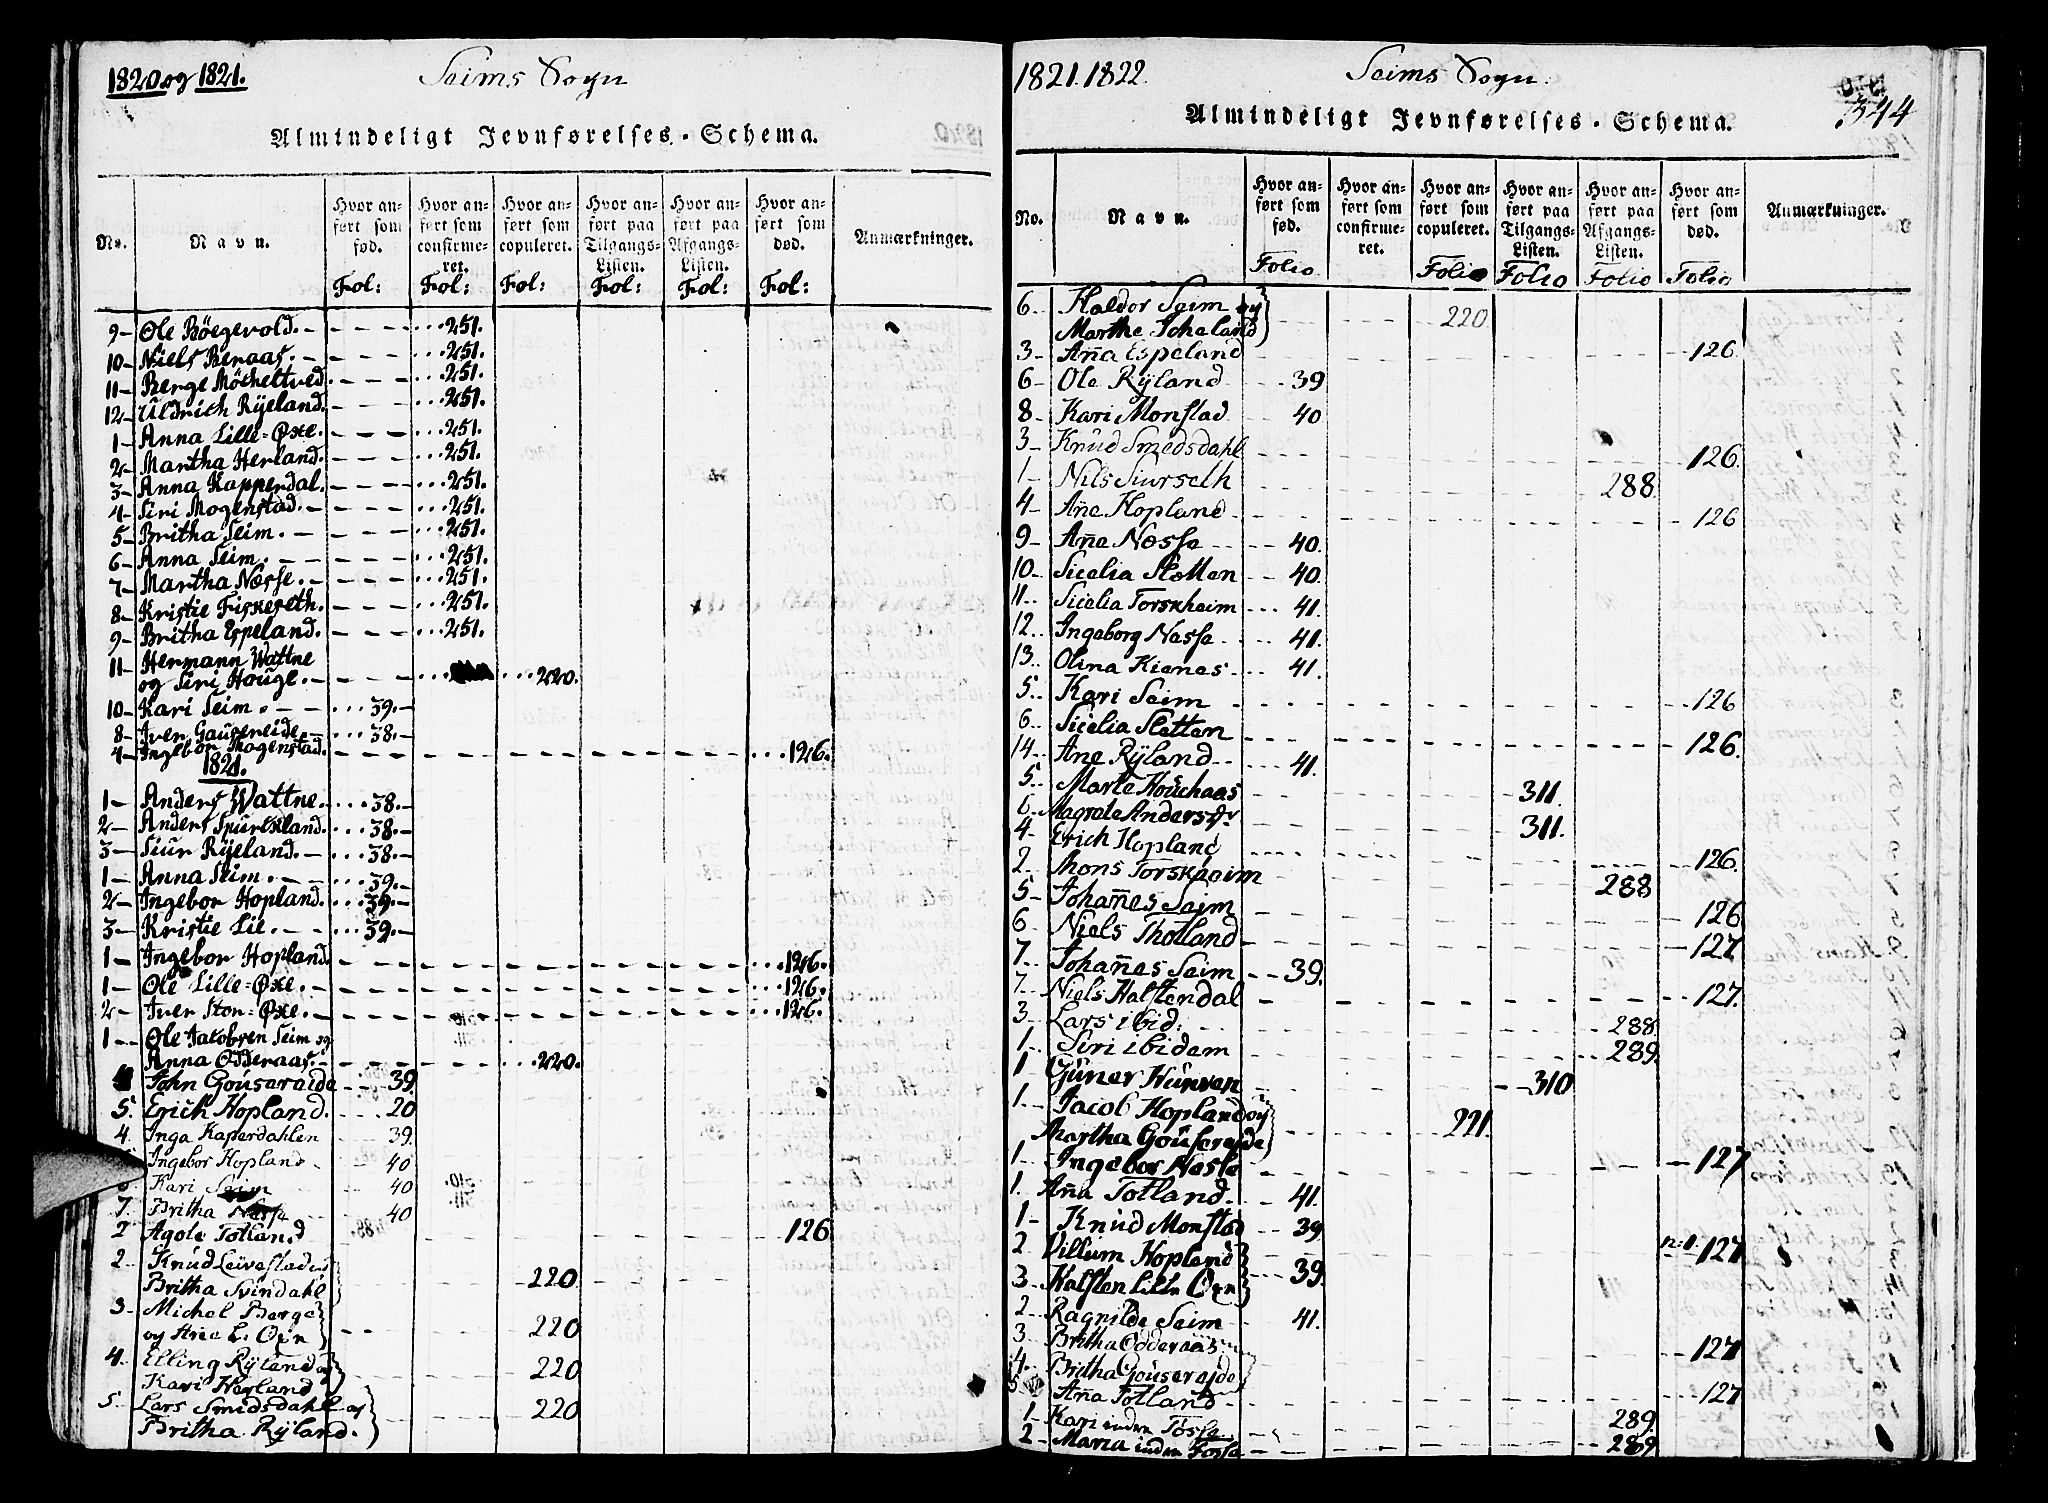 1820 og 1821.
Seims Sogn
Almindeligt Jevnførelses-Schema.
No.
Navn.
Hvor anført som fød.
Hvor anført som confirmeret.
Hvor anført som copuleret.
Hvor anført paa Tilgangs-Listen.
Hvor anført paa Afgangs-Listen.
Hvor anført som død.
Anmærkninger.
Fol: Fol: Fol: Fol: Fol: Fol:
9 Ole Böegevold. 251.
10 Niels Beraas. 251.
11 Berge Möcheltved. 251.
12 Uldrich Rÿeland. 251.
1 Anna Lille-Øxe. 251.
2 Martha Herland. 251.
3 Anna Kappendal. 251.
4 Siri Mogenstad. 251.
5 Britha Seim. 251.
6 Anna Seim. 251.
7 Martha Næsse. 251.
8 Kristie Fiskeseth. 251.
9 Britha Espeland. 251.
11 Hermann Wattne
og Siri Houge. 220.
10 Kari Seim. 39.
8 Iver Gausereide. 38.
4 Ingebor Mogenstad. 126.
1821.
1 Anders Wattne. 38.
2 Anders Spurkland. 38.
3 Siur Rÿeland. 38.
1 Anna Seim. 39.
2 Ingebor Hopland. 39.
3 Kristie Lie. 39.
1 Ingebor Hopland. 126.
1 Ole Lille-Øxe. 126.
2 Iver Stor-Øxe. 126.
1 Ole Jacobsen Seim og
Anna Odderaas. 220.
4 John Gousaraide 39
5. Erich Hopland. 20
4. Inga Kaperdahlen 39
Ingebor Hopland 40
6. Kari Seim 40
7. Britha Næsse 40
2 Agole Totland 126
2 Knud Leivestad
Britha Svindahl 220
3 Michel Berge
og Ane L. Oxn 220
4. Elling Rÿland og
Kari Herland 220
5. Lars Smidsdahl og
Britha Rÿland. 220
1821. 1822.
Seims Sogn.
344
Almindeligt Jevnførelses-Schema.
No.
Navn.
Hvor anført som fød.
Hvor anført som confirmeret.
Hvor anført som copuleret.
Hvor anført paa Tilgangs-Listen.
Hvor anført paa Afgangs-Listen.
Hvor anført som død.
Anmærkninger.
Folio Folio Folio Folio Folio
6 Haldor Seim og
Marthe Schaland 220
3 Aña Espeland 126
6 Ole Rÿland 39
8 Kari Monstad 40
3 Knud Smedsdahl 126.
1 Nils Siurseth 288.
4 Ane Hopland 126
9 Aña Næsse 40.
10 Sicelia Sletten 40.
11. Sicelia Torskheim 41.
12. Ingeborg Næsse 41.
13. Olina Kienes 41.
5. Kari Seim 126
6. Sicelia Sletten 126.
14 Ane Rÿland 41.
5. Marte Kouchaas 311.
6. Magrele Andersdr 311.
4 Erich Hopland 126.
2 Mons Torskheim 288
5 Johañes Seim 126
6 Niels Thotland 127
7. Johañes Seim 39.
7. Niels Halstendal 127.
3 Lars ibid: 288.
1 Siri ibidem 289.
1 Guner Hunven 310
1. Jacob Hopland og
Martha Gousaraide 221.
1. Ingebor Nesse 127
1. Aña Totland 41.
1 Knud Monstad 39
2 Villum Hopland n:1. 127
3. Halsten Lille Oxn 39.
2 Ragnilde Seim 41.
3 Britha Odderaas 127
4. Britha Gouseraide
5 Aña Totland 127
1 Kari inden Fossa 289.
2 Maria inden Fossa 289